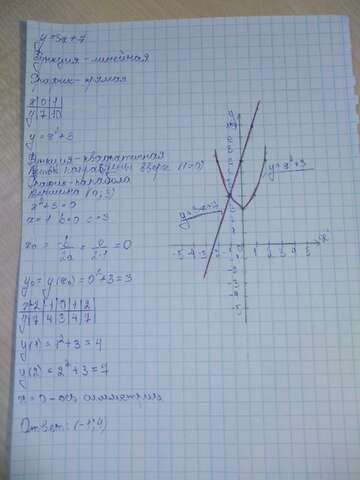 y=3x+7
Функция - линейная
График - прямая
x|0|1
y|7|10
y=x²+3
Функция - квадратичная
Ветви направлены вверх (1>0)
График - парабола
Вершина (0;3)
x²+3=0
a=1 b=0 c=3
x₀ = -b/2a = 0/2·1 = 0
y₀ = y(x₀) = 0²+3 = 3
x|-2|-1|0|1|2
y|7|4|3|4|7
y(1) = 1²+3 = 4
y(2) = 2²+3 = 7
x=0 - ось симметрии
Ответ: (-1;4)
y=x²+3
y=3x+7
-5 -4 -3 -2 -1 1 2 3 4 5 x